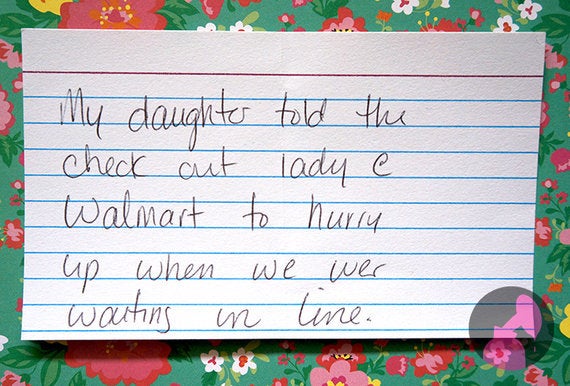 My daughter told the
check out lady @
Walmart to hurry
up when we wer
waiting in line.